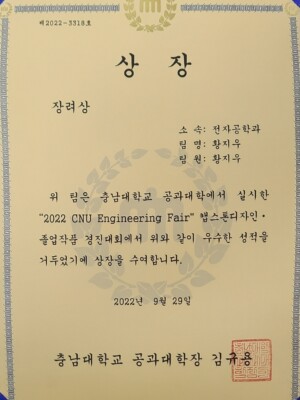 제2022-3318호
상 장
장려상
소 속: 전자공학과
팀 명: 황지우
팀 원: 황지우
위 팀은 충남대학교 공과대학에서 실시한
"2022 CNU Engineering Fair" 캡스톤디자인·
졸업작품 경진대회에서 위와 같이 우수한 성적을
거두었기에 상장을 수여합니다.
2022년 9월 29일
충남대학교 공과대학장 김규용